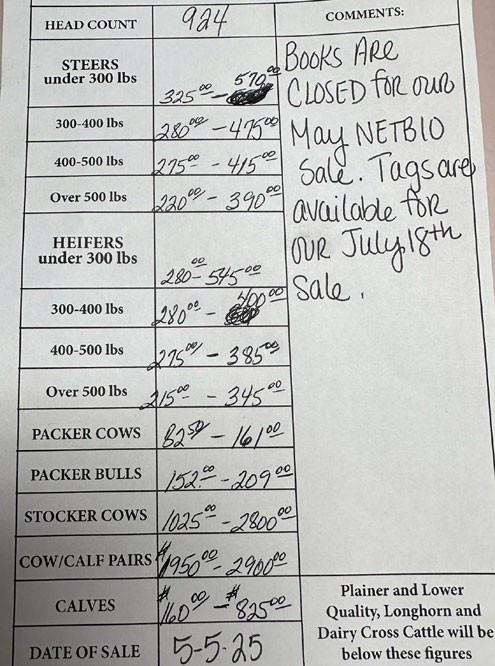 HEAD COUNT 924
STEERS
under 300 lbs 325.00 - 570.00
300-400 lbs 280.00 - 475.00
400-500 lbs 275.00 - 415.00
Over 500 lbs 220.00 - 390.00
HEIFERS
under 300 lbs 280.00 - 545.00
300-400 lbs 280.00 - 400.00
400-500 lbs 275.00 - 385.00
Over 500 lbs 215.00 - 345.00
PACKER COWS 82.50 - 161.00
PACKER BULLS 152.00 - 209.00
STOCKER COWS 1025.00 - 2800.00
COW/CALF PAIRS $1950.00 - 2900.00
CALVES $160.00 - $825.00
DATE OF SALE 5-5-25
COMMENTS:
BOOKS ARE
CLOSED FOR OUR
May NETBIO
Sale. Tags are
available for
our July 18th
Sale.
Plainer and Lower
Quality, Longhorn and
Dairy Cross Cattle will be
below these figures